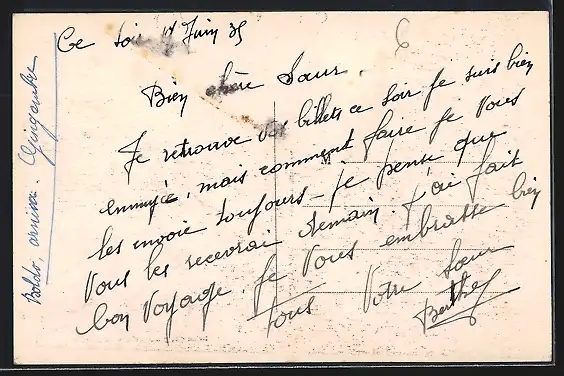 Ce soir 14 Juin 35
Bien chère Sœur.
Je retrouve vos billets ce soir je suis bien
ennuyée, mais comment faire je vous
les envoie toujours – je pense que
vous les recevrai demain. j'ai fait
bon voyage. je vous embrasse bien
tous Votre sœur
Berthe
Guingamp